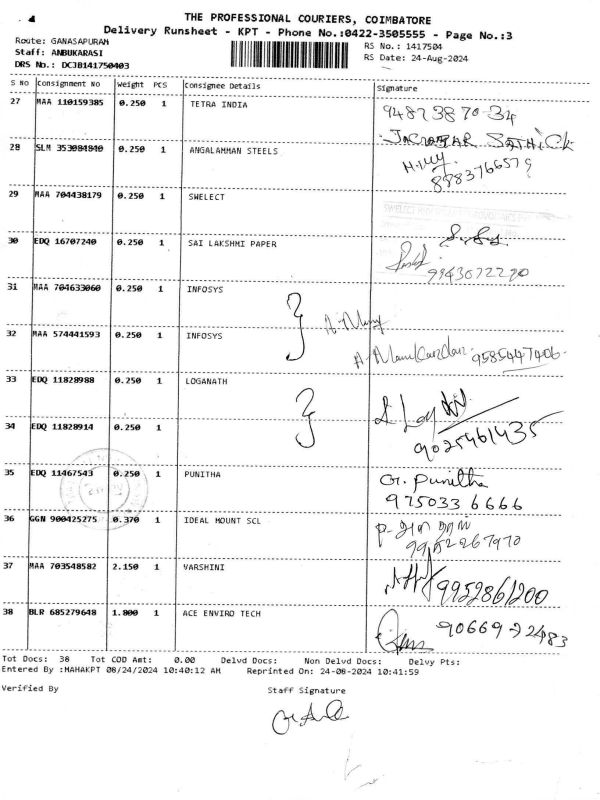 THE PROFESSIONAL COURIERS, COIMBATORE
Delivery Runsheet - KPT - Phone No.:0422-3505555 - Page No.:3
Route: GANASAPURAM
RS No.: 1417504
Staff: ANBUKARASI
RS Date: 24-Aug-2024
DRS No.: DCJB141750403
S No Consignment No Weight PCS Consignee Details Signature
27 MAA 110159385 0.250 1 TETRA INDIA 94873870-34
28 SLM 353084840 0.250 1 ANGALAMMAN STEELS
8883766579
29 MAA 704438179 0.250 1 SWELECT
30 EDQ 16707240 0.250 1 SAI LAKSHMI PAPER
31 MAA 704633060 0.250 1 INFOSYS
32 MAA 574441593 0.250 1 INFOSYS
A. Manikandan 9585447406
33 EDQ 11828988 0.250 1 LOGANATH
34 EDQ 11828914 0.250 1
9025461435
35 EDQ 11467543 0.250 1 PUNITHA G. Punitha
975033 6666
36 GGN 900425275 0.370 1 IDEAL MOUNT SCL
9952267970
37 MAA 703548582 2.150 1 VARSHINI 9952861200
38 BLR 685279648 1.800 1 ACE ENVIRO TECH 90669-22483
Tot Docs: 38 Tot COD Amt: 0.00 Delvd Docs: Non Delvd Docs: Delvy Pts:
Entered By :MAHAKPT 08/24/2024 10:40:12 AM Reprinted On: 24-08-2024 10:41:59
Verified By Staff Signature